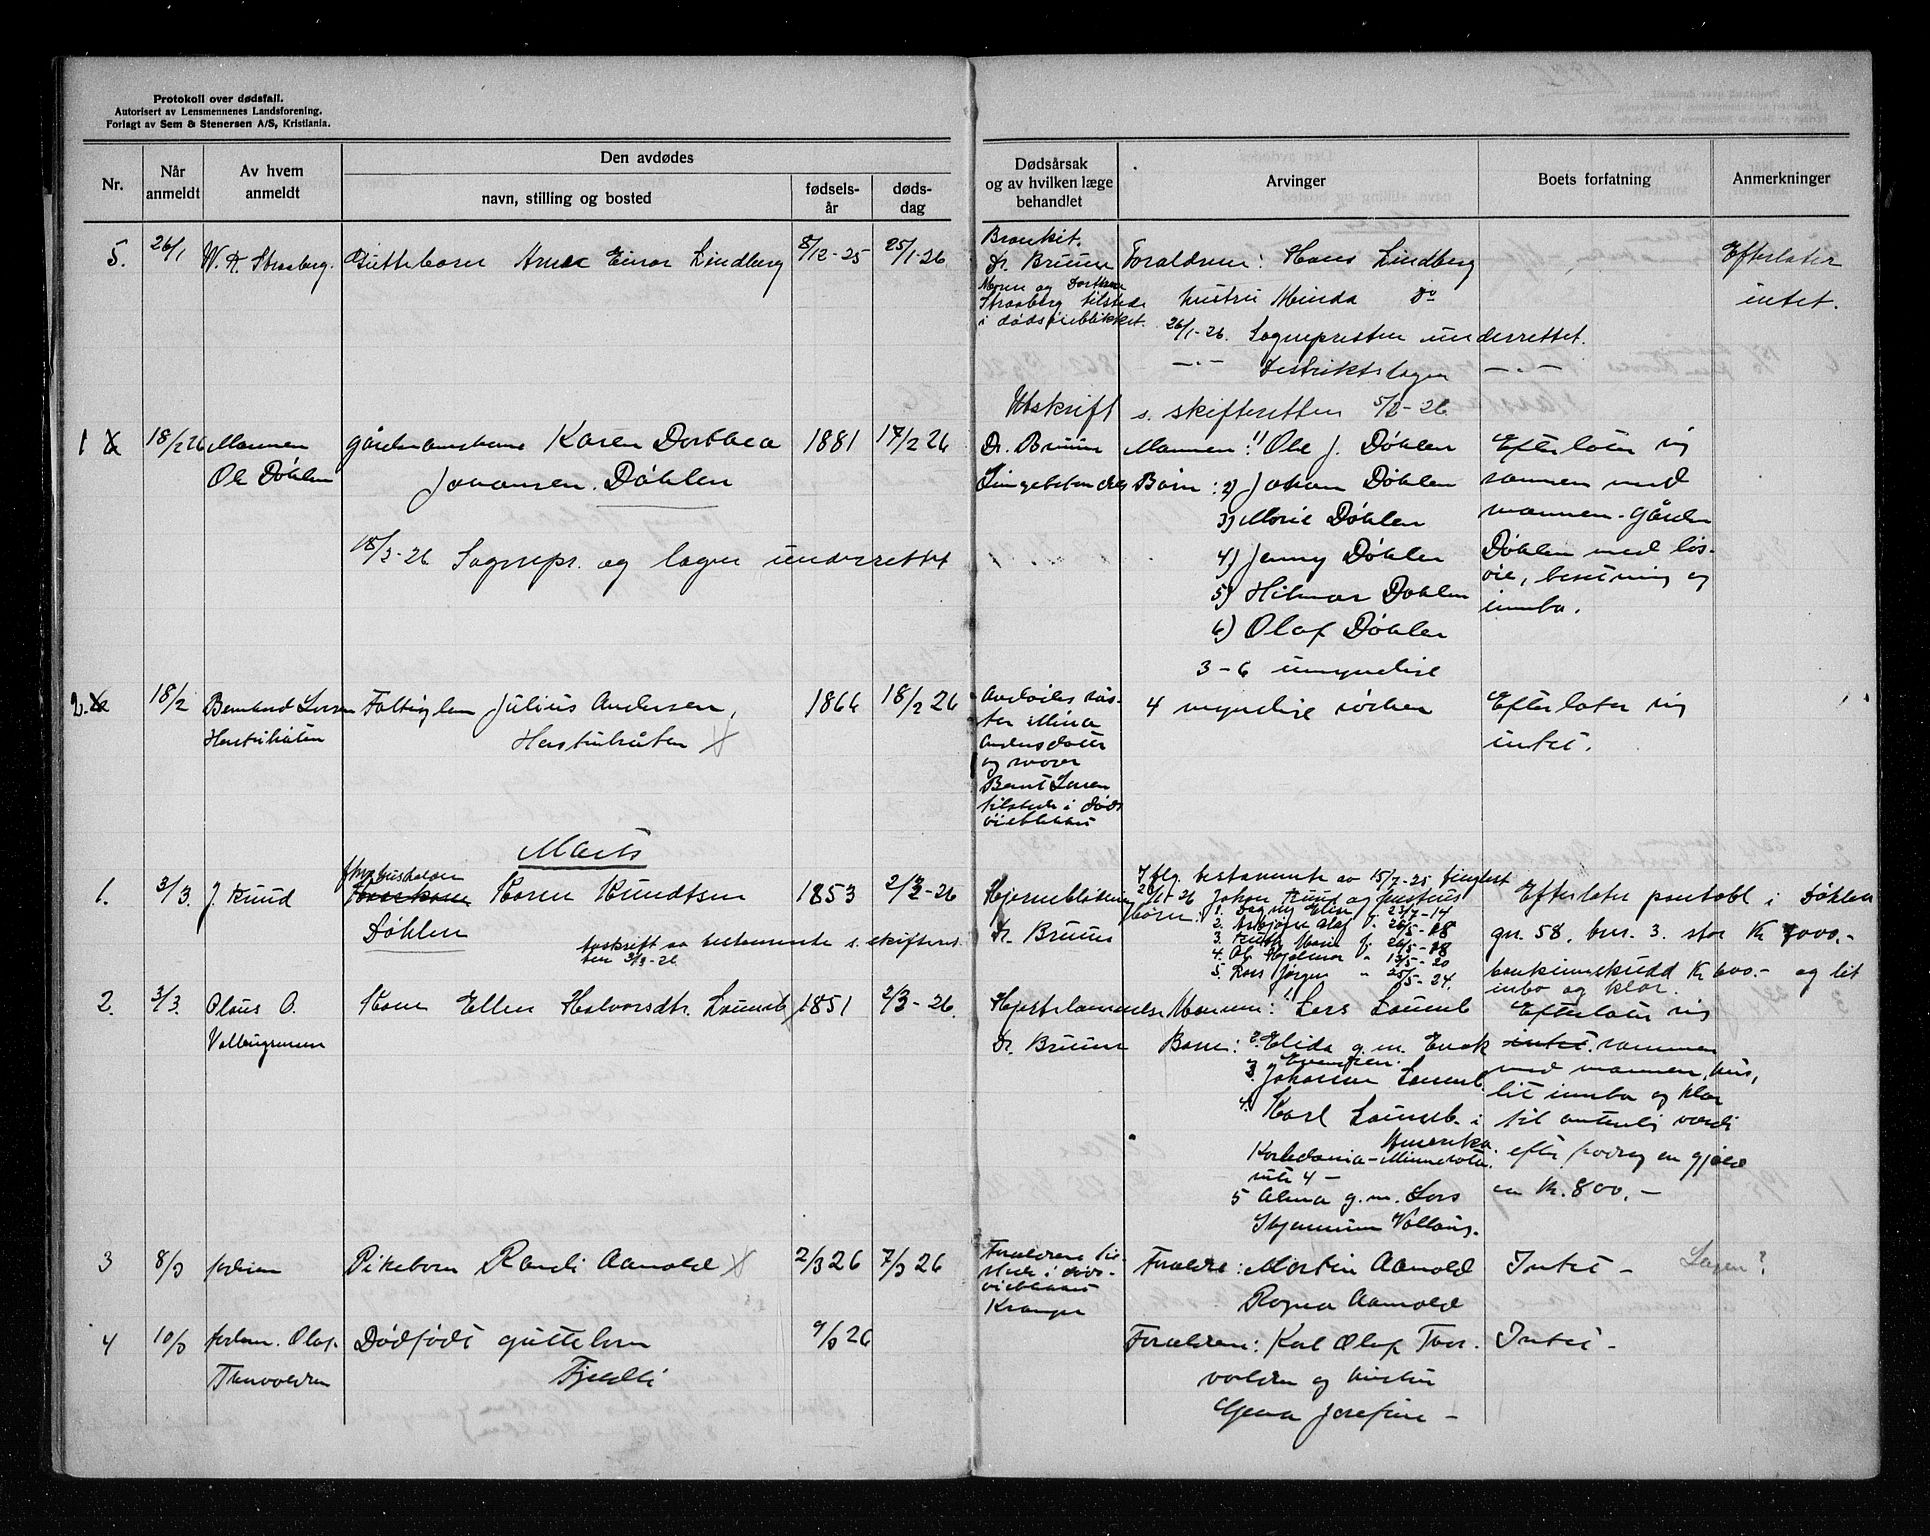 Protokoll over dødsfall.
Autorisert av Lensmennenes Landsforening.
Forlagt av Sem & Stenersen A/S, Kristiania.
Nr.
Når anmeldt
Av hvem anmeldt
Den avdødes
navn, stilling og bosted
fødsels-år
døds-dag
Dødsårsak og av hvilken læge behandlet
Arvinger
Boets forfatning
Anmerkninger
5. 26/1 W. A. Straaberg. Guttebarn Arne Einar Lindberg 8/12-25 25/1-26
Bronkit.
Dr. Bruun
Moren og
Straaberg tilstede
i dødsøieblikket.
Forældrene: Hans Lindberg
hustru Minda do
26/1-26. Sogneprsten underrettet.
—"— Distriktslægen —"—
Utskrift s. skifteretten 5/2-26
Efterlater
intet.
1 18/2 26 Mannen
Ole Døhlen
Karen Dorthea
Johansen. Døhlen
1881 17/2 26
18/2-26 Sognepr. og lægen underrettet
Dr. Bruun
Lungebetendelse
Mannen: 1) Ole J. Døhlen
Barn: 2) Johan Døhlen
3) Marie Døhlen
4) Jenny Døhlen
5) Hilmar Døhlen
6) Olaf Døhlen
3-6 umyndige
Efterlater sig
sammen med
mannen gården
Døhlen med løs-
øie, besetning og
innbo.
2. 18/2 Bernhard Larsen
Fattiglem Julius Andersen,
1866 18/2 26
Avdødes søs-
ter Mina
Andersdatter
og svoger
Bernt Larsen
tilstede i døds
øieblikket
4 myndige søsken
Efterlater sig
intet.
Marts
1. 3/3. J. Knud
Karen Knudtsen
Døhlen
1853 2/3-26
Avskrift av testamente s. skifteret-
ten 3/3-26
Hjerneblødning
Dr. Bruun
Iflg. testamente av 15/7-25 tinglest
20/1-26 Johan Knud og hustrus
barn: 1. Dagny Elise f. 23/7-14
2. Asbjørn Olaf f. 26/5-18
3. Ruth Marie f. 26/5-18
4. Ole Hjalmar " 13/5-20
5. Lars Jørgen " 25/5-24.
Efterlater pantobl i Døhlen
gn. 58, bn. 3. stor Kr 7000.-
bankinnskudd Kr 600.- og lit
innbo og klær.
2. 3/3. Olaus O.
Kone Ellen Halvorsdtr. 1851 2/3-26.
Hjertelammelse
Dr. Bruun
Mannen: 1 Lars
Barn: 2. Elida g.m. Enok
Evensen.
3. Johanne
4. Karl i
Amerika.
Kaledonia-Minnesota.
rute 4 -
5 Alma g.m. Lars
Skjennum
Efterlater sig
intet. sammen
med mannen, hus,
lit innbo og klær
til antatlig værdi
efter fradrag en gjæld
en Kr. 800.-
3 8/3 faderen Pikebarn Randi Aamold 2/3 26 7/3 26
Forældrene til-
stede i døds-
øieblikket
Krampe
Forældre: Martin Aamold
Ragna Aamold
Intet - Lægen?
4 10/3 faderen. Olaf
Thorvaldsen
Dødfødt guttebarn
9/3 26
Forældrene: Karl Olaf Thor-
valdsen og hustru
Gena Josefine -
Intet -